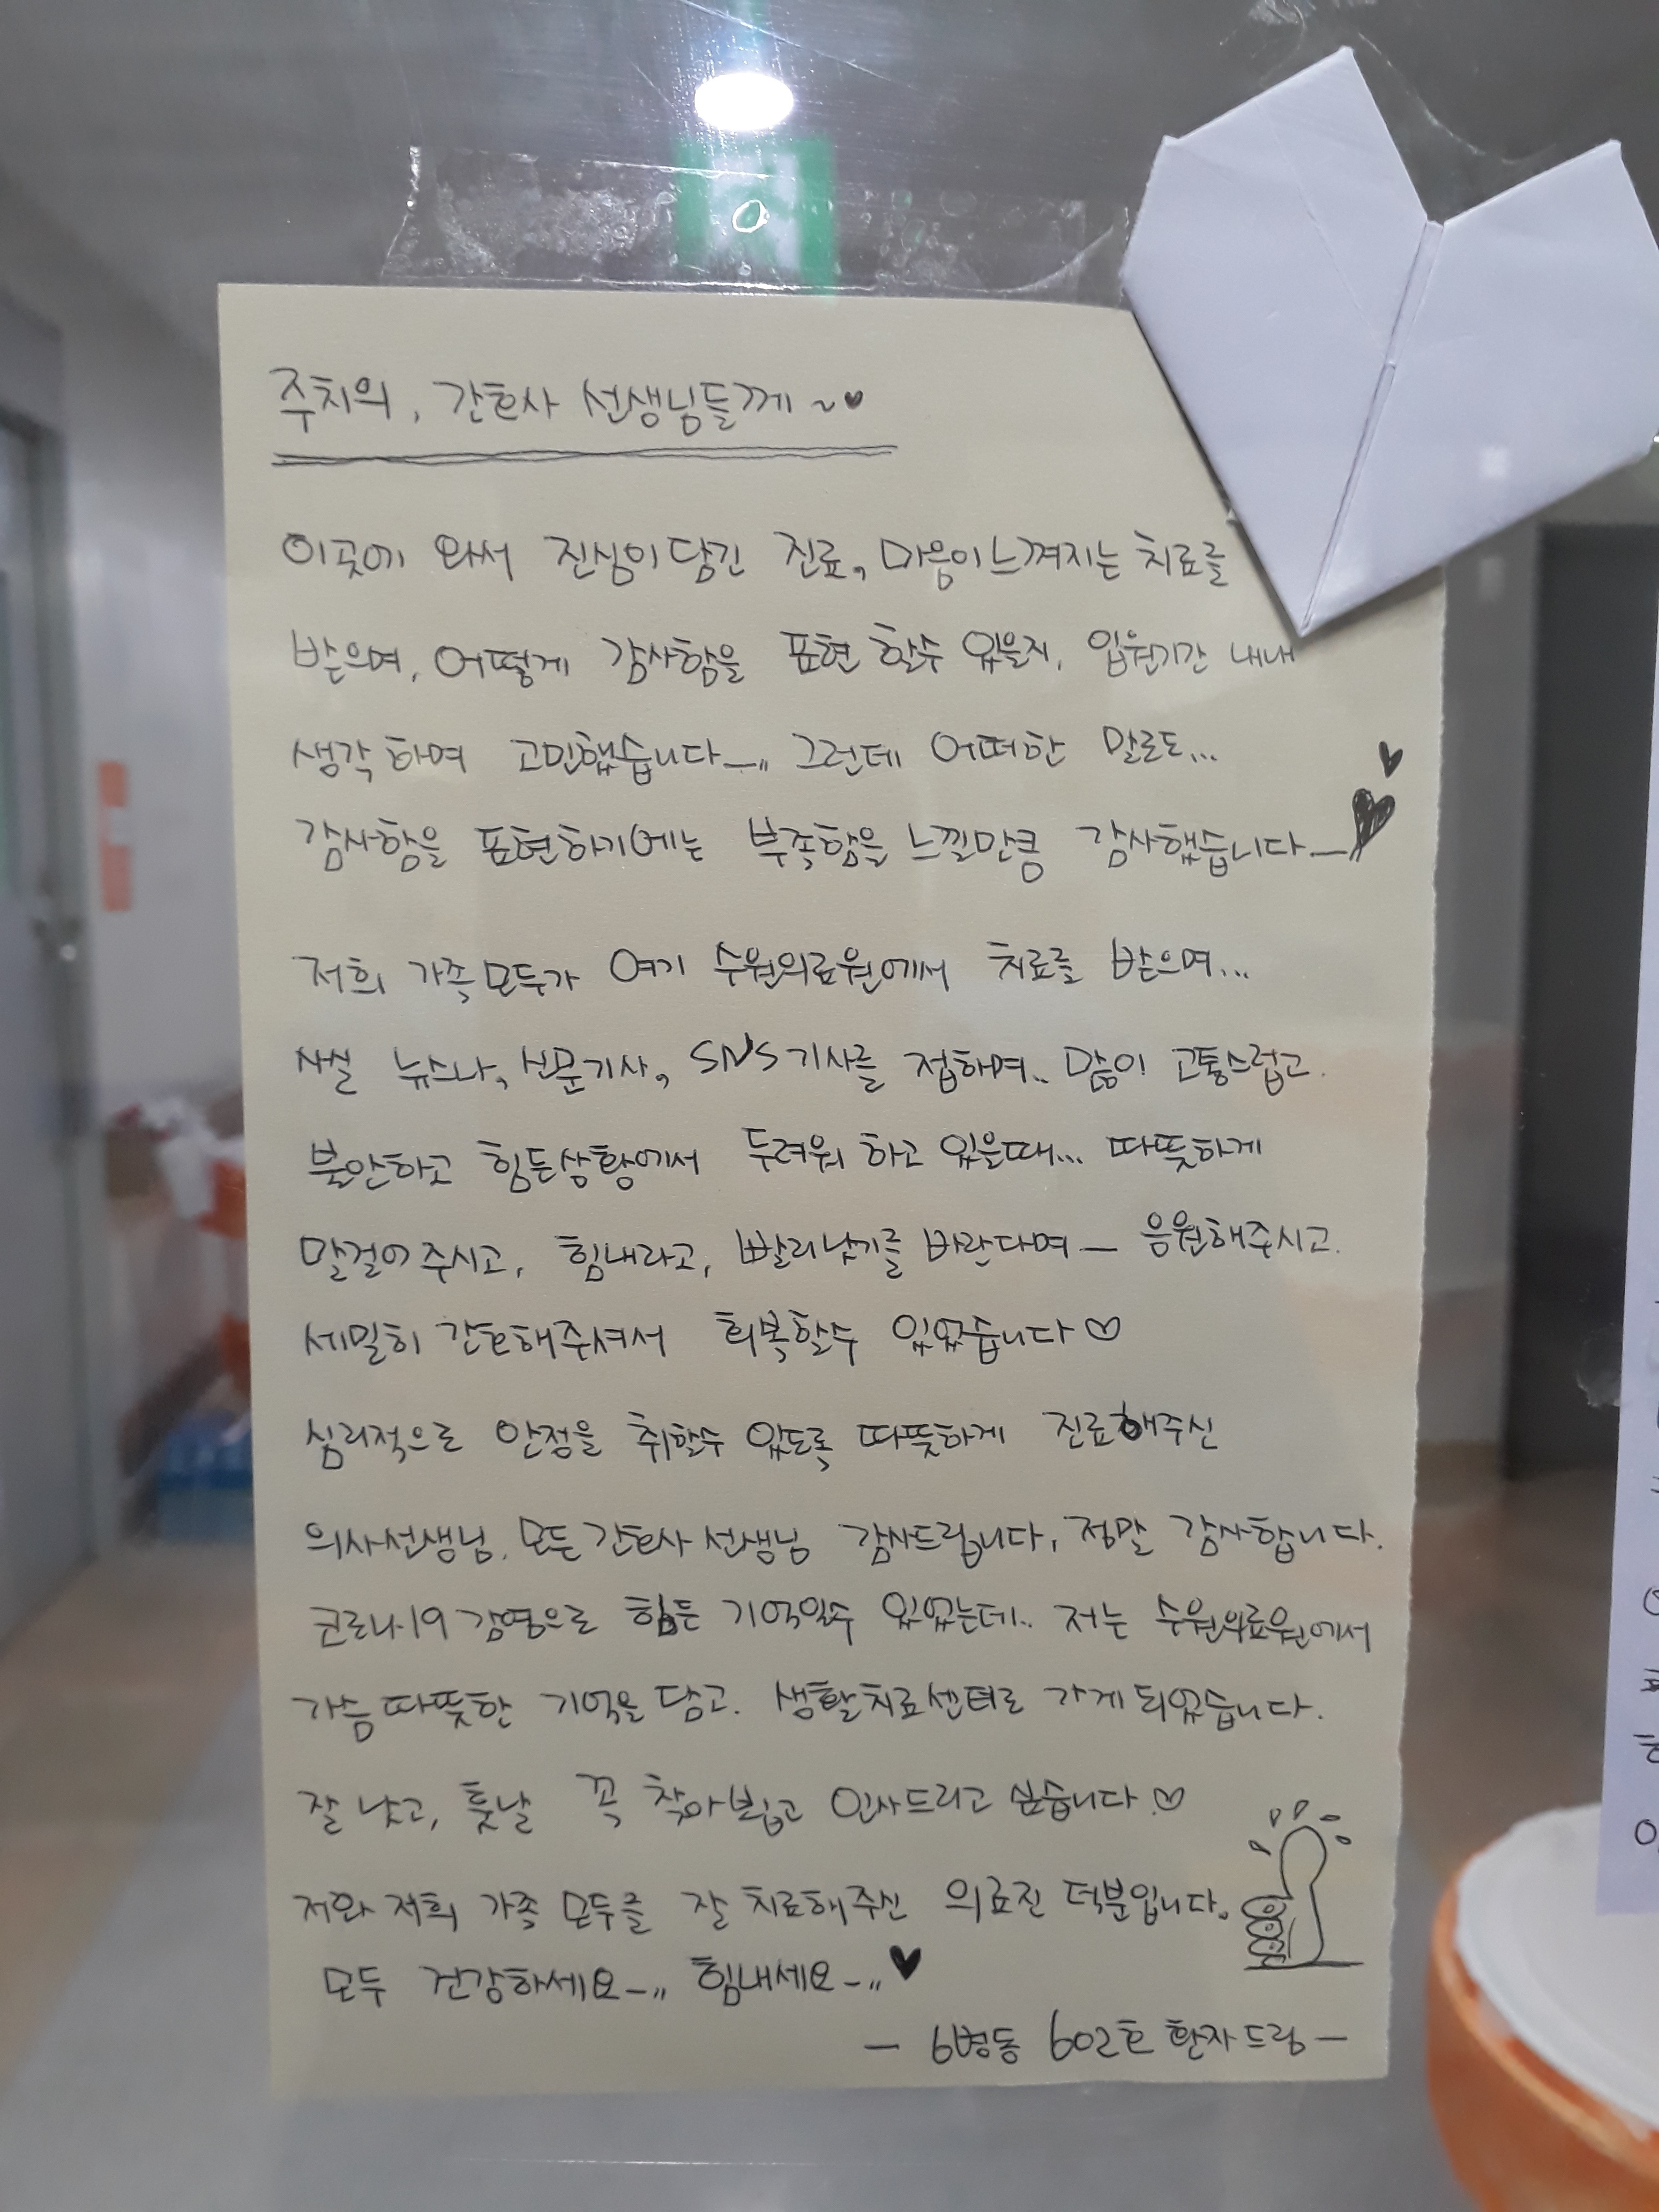 주치의, 간호사 선생님들께~♥
이곳에 와서 진심이 담긴 진료, 마음이 느껴지는 치료를
받으며, 어떻게 감사함을 표현 할수 있을지, 입원기간 내내
생각하며 고민했습니다—,, 그런데 어떠한 말로도...
감사함을 표현하기에는 부족함을 느낄만큼 감사했습니다—♥♥
저희 가족모두가 여기 수원의료원에서 치료를 받으며...
사실 뉴스나, 신문기사, SNS기사를 접하며.. 많이 고통스럽고.
불안하고 힘든상황에서 두려워 하고 있을때... 따뜻하게
말걸어주시고, 힘내라고, 빨리낫기를 바란다며— 응원해주시고.
세밀히 간호해주셔서 회복할수 있었습니다♡
심리적으로 안정을 취할수 있도록 따뜻하게 진료해주신
의사선생님. 모든간호사선생님 감사드립니다, 정말 감사합니다.
코로나19감염으로 힘든 기억일수 있었는데.. 저는 수원의료원에서
가슴따뜻한 기억을 담고. 생활치료센터로 가게되었습니다.
잘 낫고, 훗날 꼭 찾아뵙고 인사드리고 싶습니다.♡
저와 저희 가족 모두를 잘 치료해주신 의료진 덕분입니다.
모두 건강하세요—,, 힘내세요—,,♥
— 6병동 602호 환자드림—